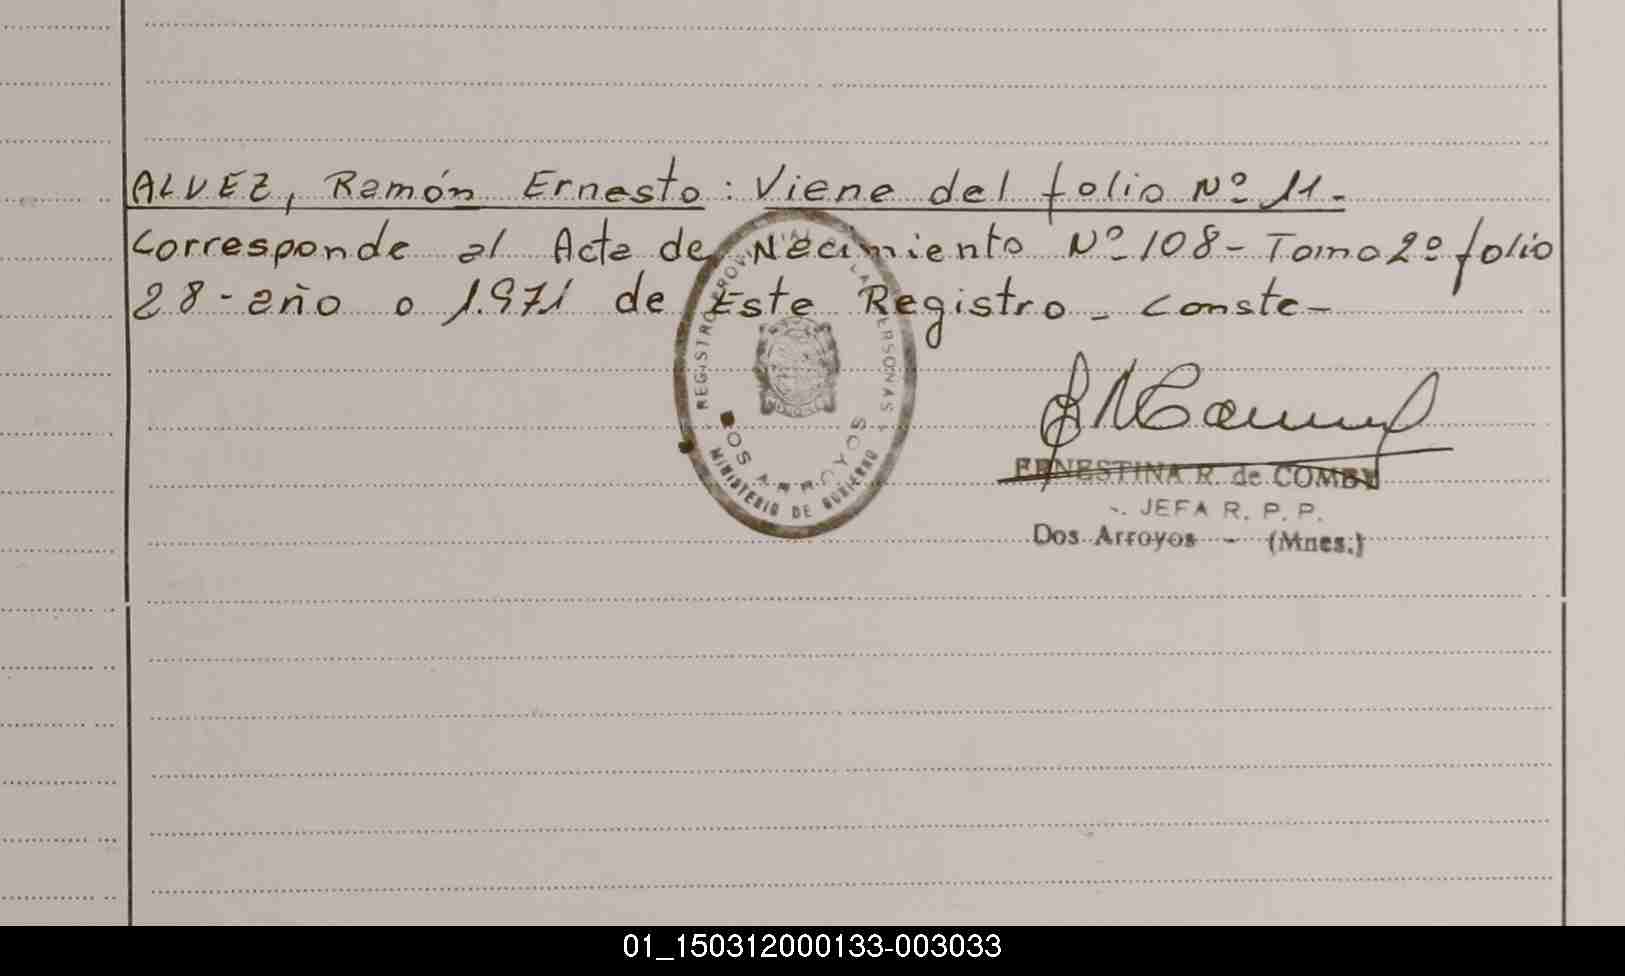 ALVEZ, Ramón Ernesto: Viene del folio Nº 11.
Corresponde al Acta de Nacimiento Nº 108 - Tomo 2º folio
28 - año o 1.971 de Este Registro - Conste -
REGISTRO PROVINCIAL LAS PERSONAS
DOS ARROYOS
MINISTERIO DE GOBIERNO
ERNESTINA R. de COMBY
JEFA R. P. P.
Dos Arroyos - (Mnes.)
01_150312000133-003033